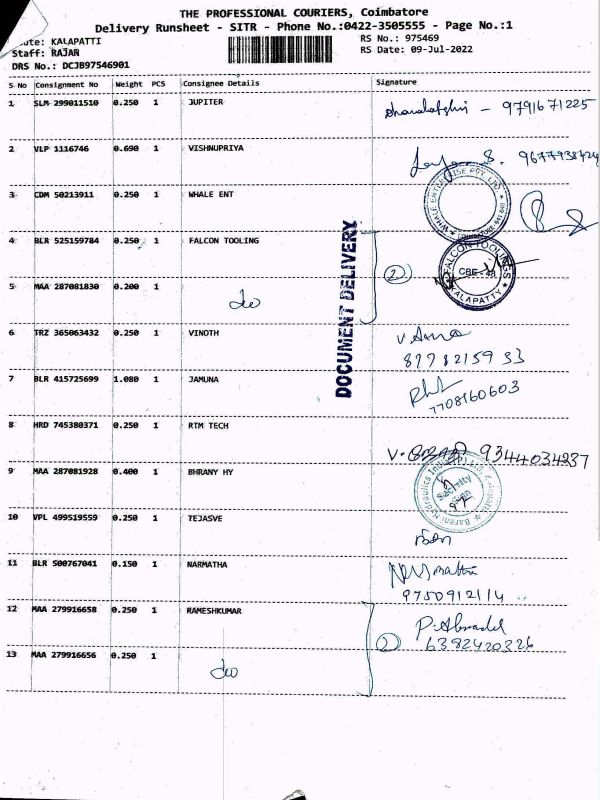 THE PROFESSIONAL COURIERS, Coimbatore
Delivery Runsheet - SITR - Phone No.:0422-3505555 - Page No.:1
KALAPATTI
RS No.: 975469
Staff: RAJAN
RS Date: 09-Jul-2022
DRS No.: DCJB97546901
S No Consignment No Weight PCS Consignee Details Signature
1 SLM 299011510 0.250 1 JUPITER - 9791671225
2 VLP 1116746 0.690 1 VISHNUPRIYA
3 CDM 50213911 0.250 1 WHALE ENT
WHALE ENTERPRISE PVT. LTD.
4 BLR 525159784 0.250 1 FALCON TOOLING
2
FALCON TOOLINGS
CBE - 48
KALAPATTY
5 MAA 287081830 0.200 1 do
DOCUMENT DELIVERY
6 TRZ 365063432 0.250 1 VINOTH
7 BLR 415725699 1.080 1 JAMUNA
7708160603
8 HRD 745380371 0.250 1 RTM TECH
9344034237
9 MAA 287081928 0.400 1 BHRANY HY
Barani Hydraulics India (P) Ltd.
Security
10 VPL 499519559 0.250 1 TEJASVE
11 BLR 500767041 0.150 1 NARMATHA
9750912114
12 MAA 279916658 0.250 1 RAMESHKUMAR
2
6382420326
13 MAA 279916656 0.250 1 do